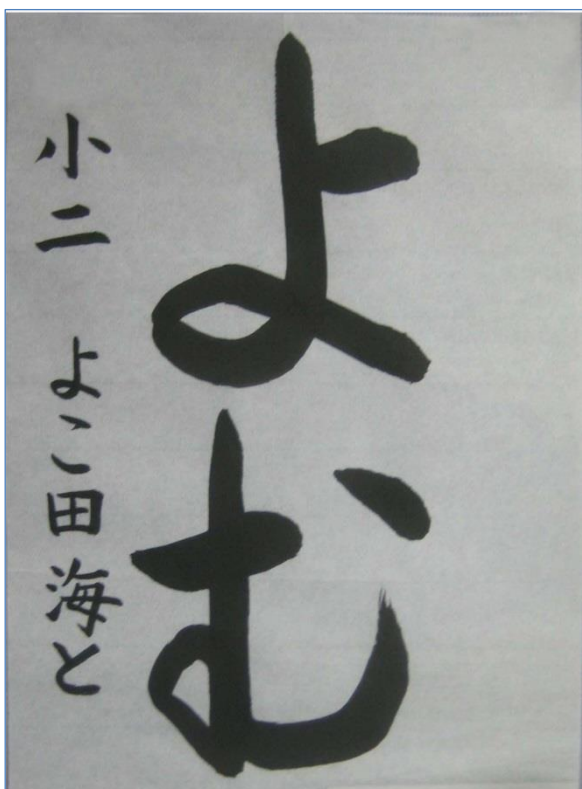 よむ
小二 よこ田海と